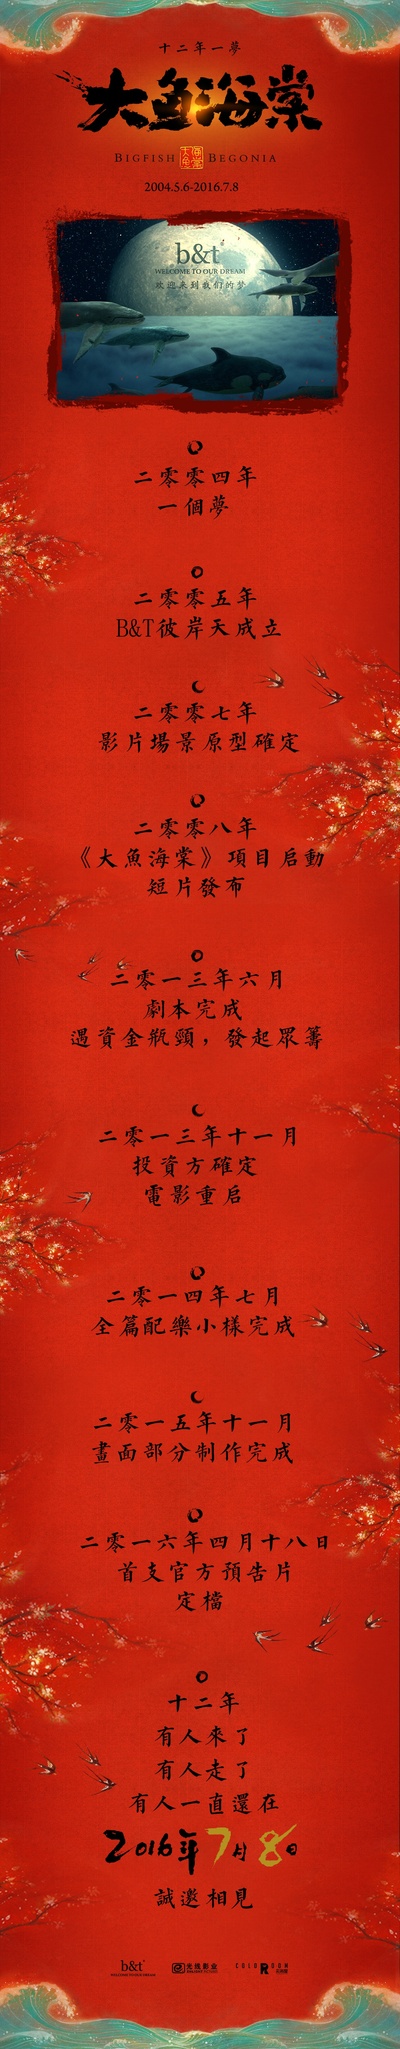 十二年一夢
大魚海棠
BIGFISH 大魚海棠 BEGONIA
2004.5.6-2016.7.8
b&t
WELCOME TO OUR DREAM
欢迎来到我们的梦
二零零四年
一個夢
二零零五年
B&T彼岸天成立
二零零七年
影片場景原型確定
二零零八年
《大魚海棠》項目启動
短片發布
二零一三年六月
劇本完成
遇資金瓶頸，發起眾籌
二零一三年十一月
投資方確定
電影重启
二零一四年七月
全篇配樂小樣完成
二零一五年十一月
畫面部分制作完成
二零一六年四月十八日
首支官方預告片
定檔
十二年
有人來了
有人走了
有人一直還在
2016年7月8日
誠邀相見
b&t
WELCOME TO OUR DREAM
光线影业
COLOROOM